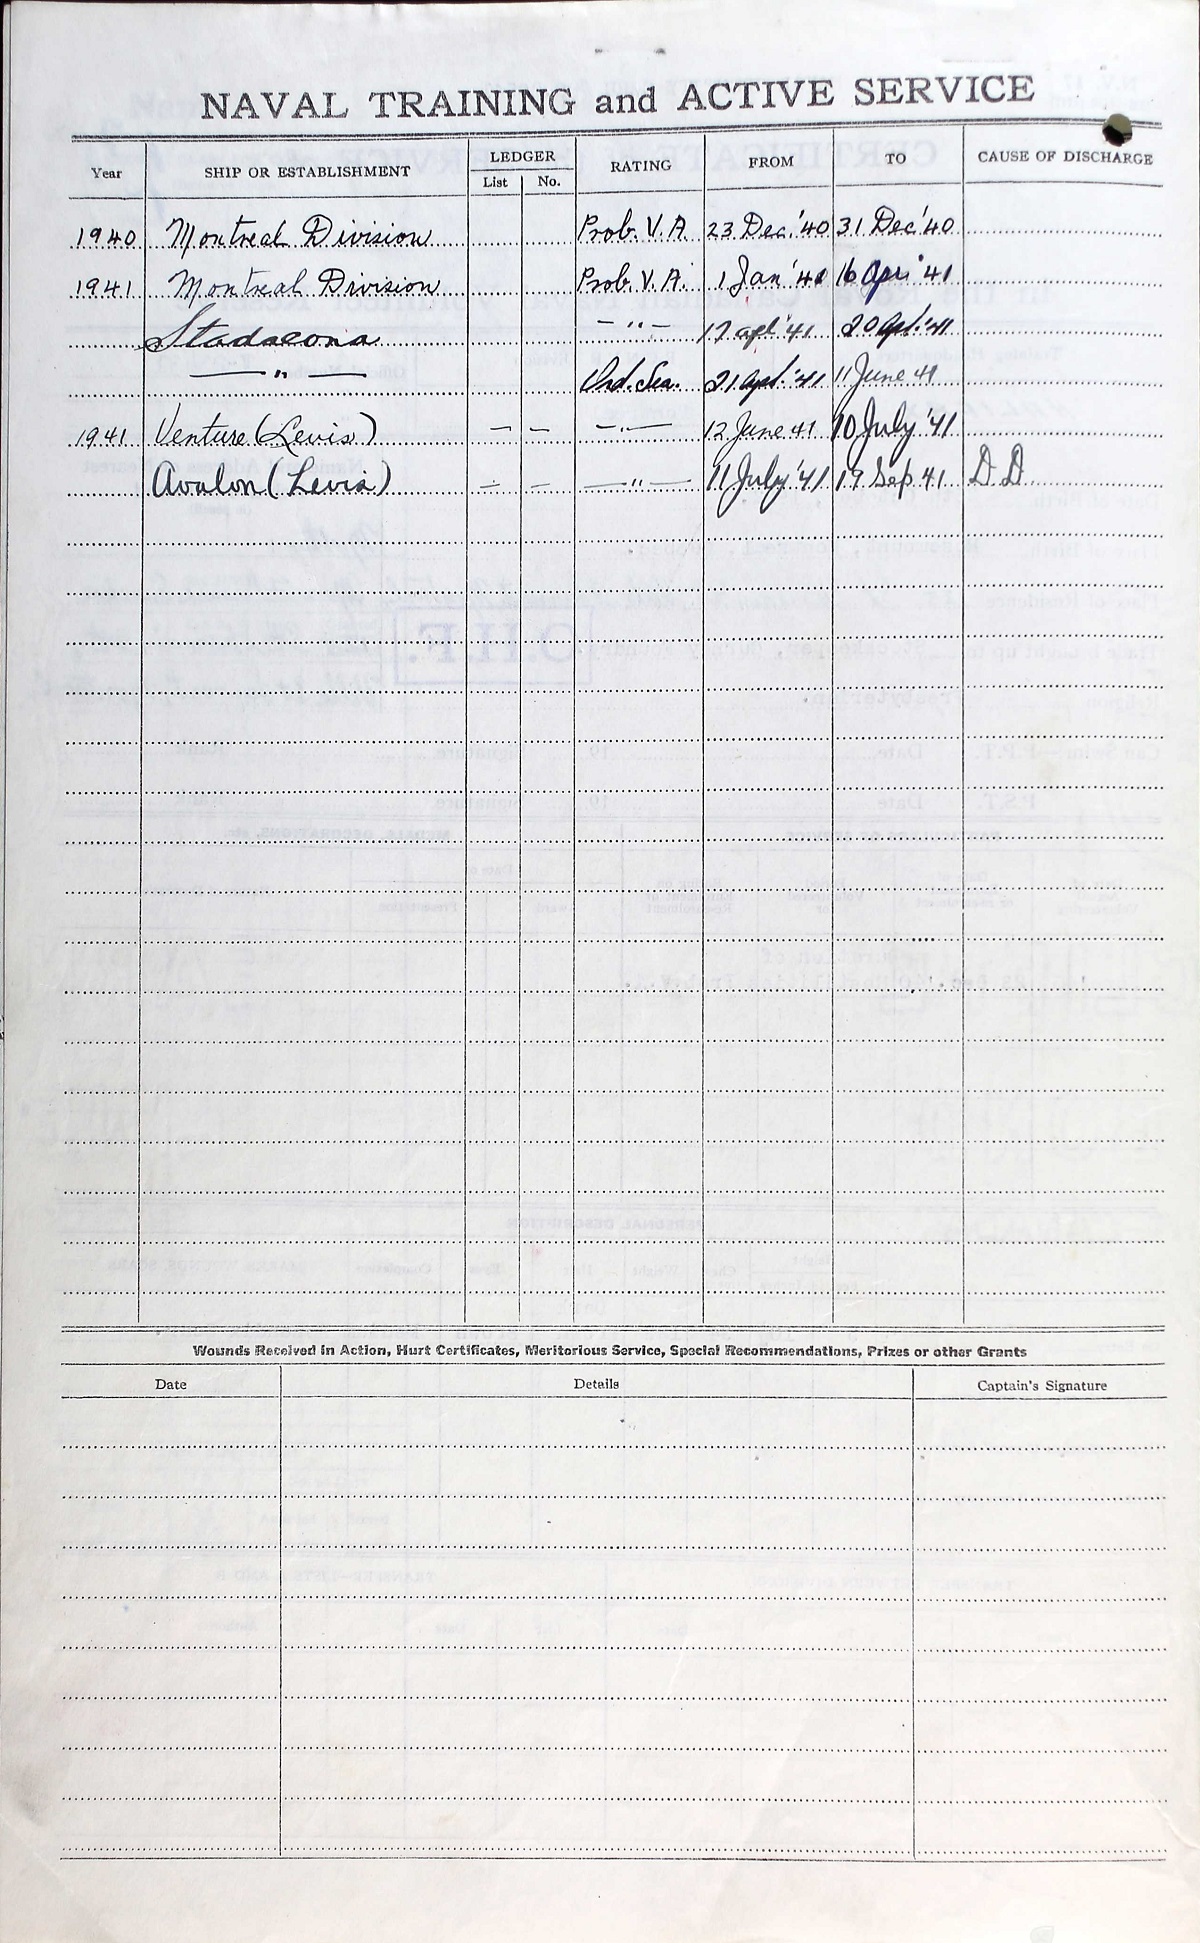 NAVAL TRAINING and ACTIVE SERVICE
Year SHIP OR ESTABLISHMENT LEDGER List No. RATING FROM TO CAUSE OF DISCHARGE
1940 Montreal Division Prob. V.A. 23 Dec. '40 31 Dec '40
1941 Montreal Division Prob. V.A. 1 Jan '41 16 Apr '41
Stadacona — " — 17 apl '41 20 Apl. '41
— " — Ord. Sea. 21 apl. '41 11 June 41
1941 Venture (Levis) — — — " — 12 June 41 10 July '41
Avalon (Levis) — — — " — 11 July '41 19 Sep. 41 D.D.
Wounds Received in Action, Hurt Certificates, Meritorious Service, Special Recommendations, Prizes or other Grants
Date Details Captain's Signature